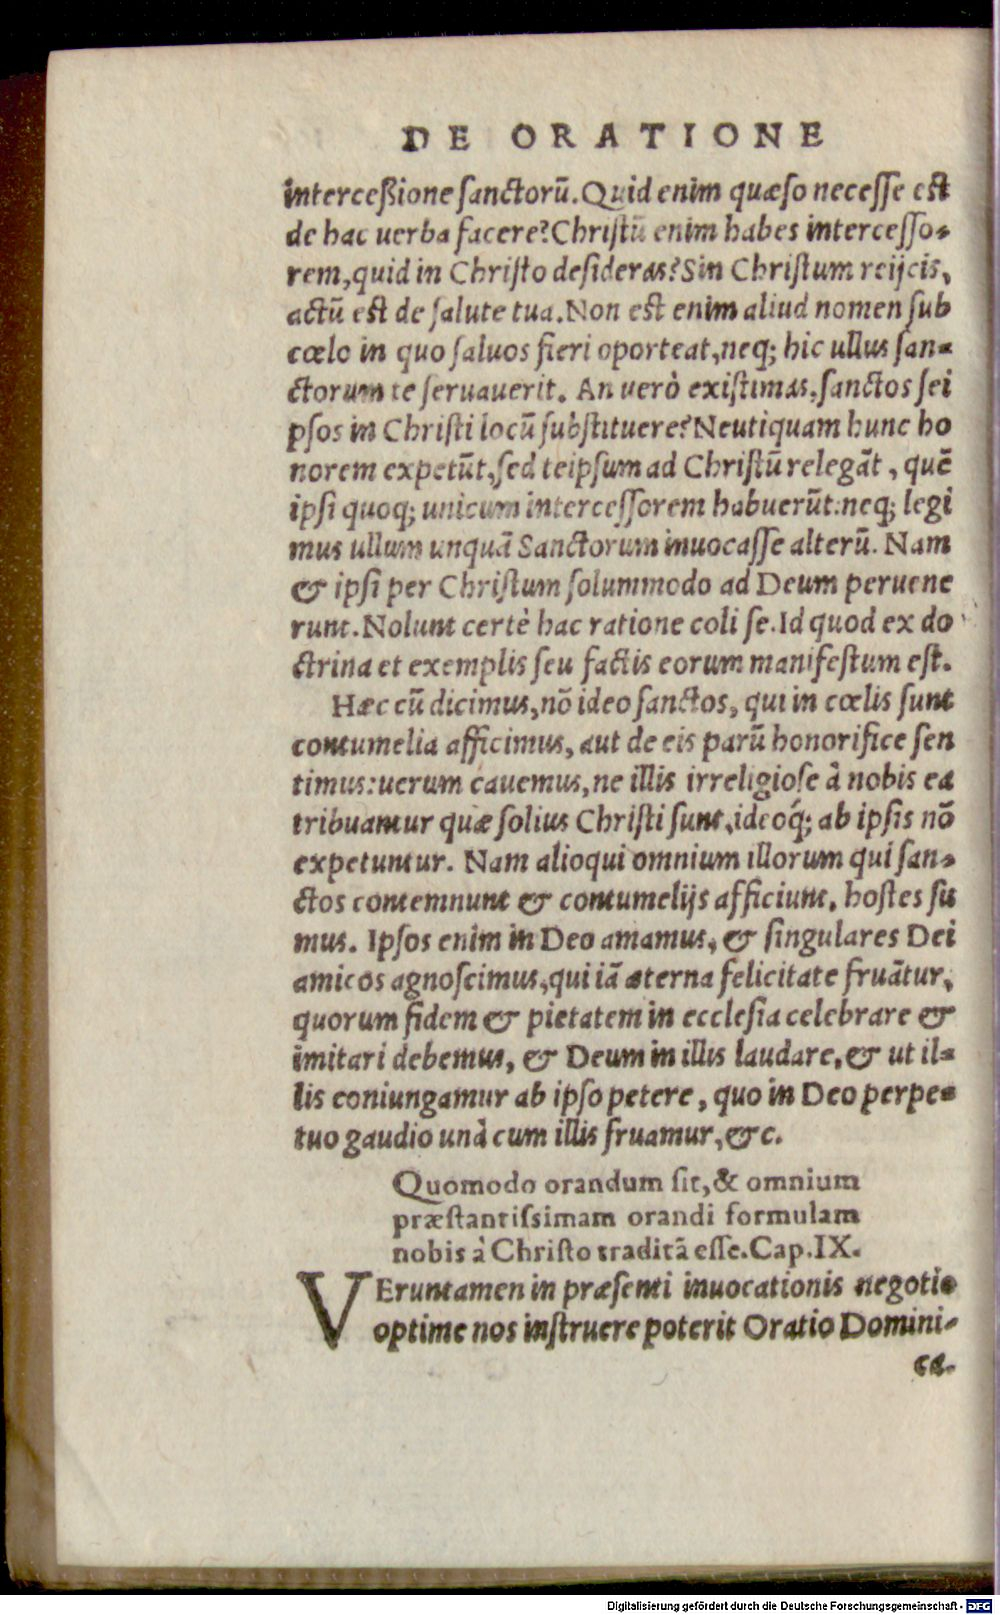 DE ORATIONE
interceßione ſanctorū. Quid enim quæſo neceſſe eſt
de hac uerba facere? Chriſtū enim habes interceſſo-
rem, quid in Chriſto deſideras? Sin Chriſtum reijcis,
actū eſt de ſalute tua. Non eſt enim aliud nomen ſub
cœlo in quo ſaluos fieri oporteat, neq; hic ullus ſan-
ctorum te ſeruauerit. An uerò exiſtimas, ſanctos ſei
pſos in Chriſti locū ſubſtituere? Neutiquam hunc ho
norem expetūt, ſed teipſum ad Chriſtū relegāt, quē
ipſi quoq; unicum interceſſorem habuerūt: neq; legi
mus ullum unquā Sanctorum inuocaſſe alterū. Nam
& ipſi per Chriſtum ſolummodo ad Deum peruene
runt. Nolunt certè hac ratione coli ſe. Id quod ex do
ctrina et exemplis ſeu factis eorum manifeſtum eſt.
Hæc cū dicimus, nō ideo ſanctos, qui in cœlis ſunt
contumelia afficimus, aut de eis parū honorifice ſen
timus: uerum cauemus, ne illis irreligioſe à nobis ea
tribuantur quæ ſolius Chriſti ſunt, ideoq́; ab ipſis nō
expetuntur. Nam alioqui omnium illorum qui ſan-
ctos contemnunt & contumelijs afficiunt, hoſtes ſu
mus. Ipſos enim in Deo amamus, & ſingulares Dei
amicos agnoſcimus, qui iā æterna felicitate fruātur,
quorum fidem & pietatem in eccleſia celebrare &
imitari debemus, & Deum in illis laudare, & ut il-
lis coniungamur ab ipſo petere, quo in Deo perpe-
tuo gaudio unà cum illis fruamur, &c.
Quomodo orandum ſit, & omnium
præſtantiſsimam orandi formulam
nobis à Chriſto traditā eſſe. Cap. IX.
VEruntamen in præſenti inuocationis negotio
optime nos inſtruere poterit Oratio Domini-
ca.
Digitalisierung gefördert durch die Deutsche Forschungsgemeinschaft - DFG